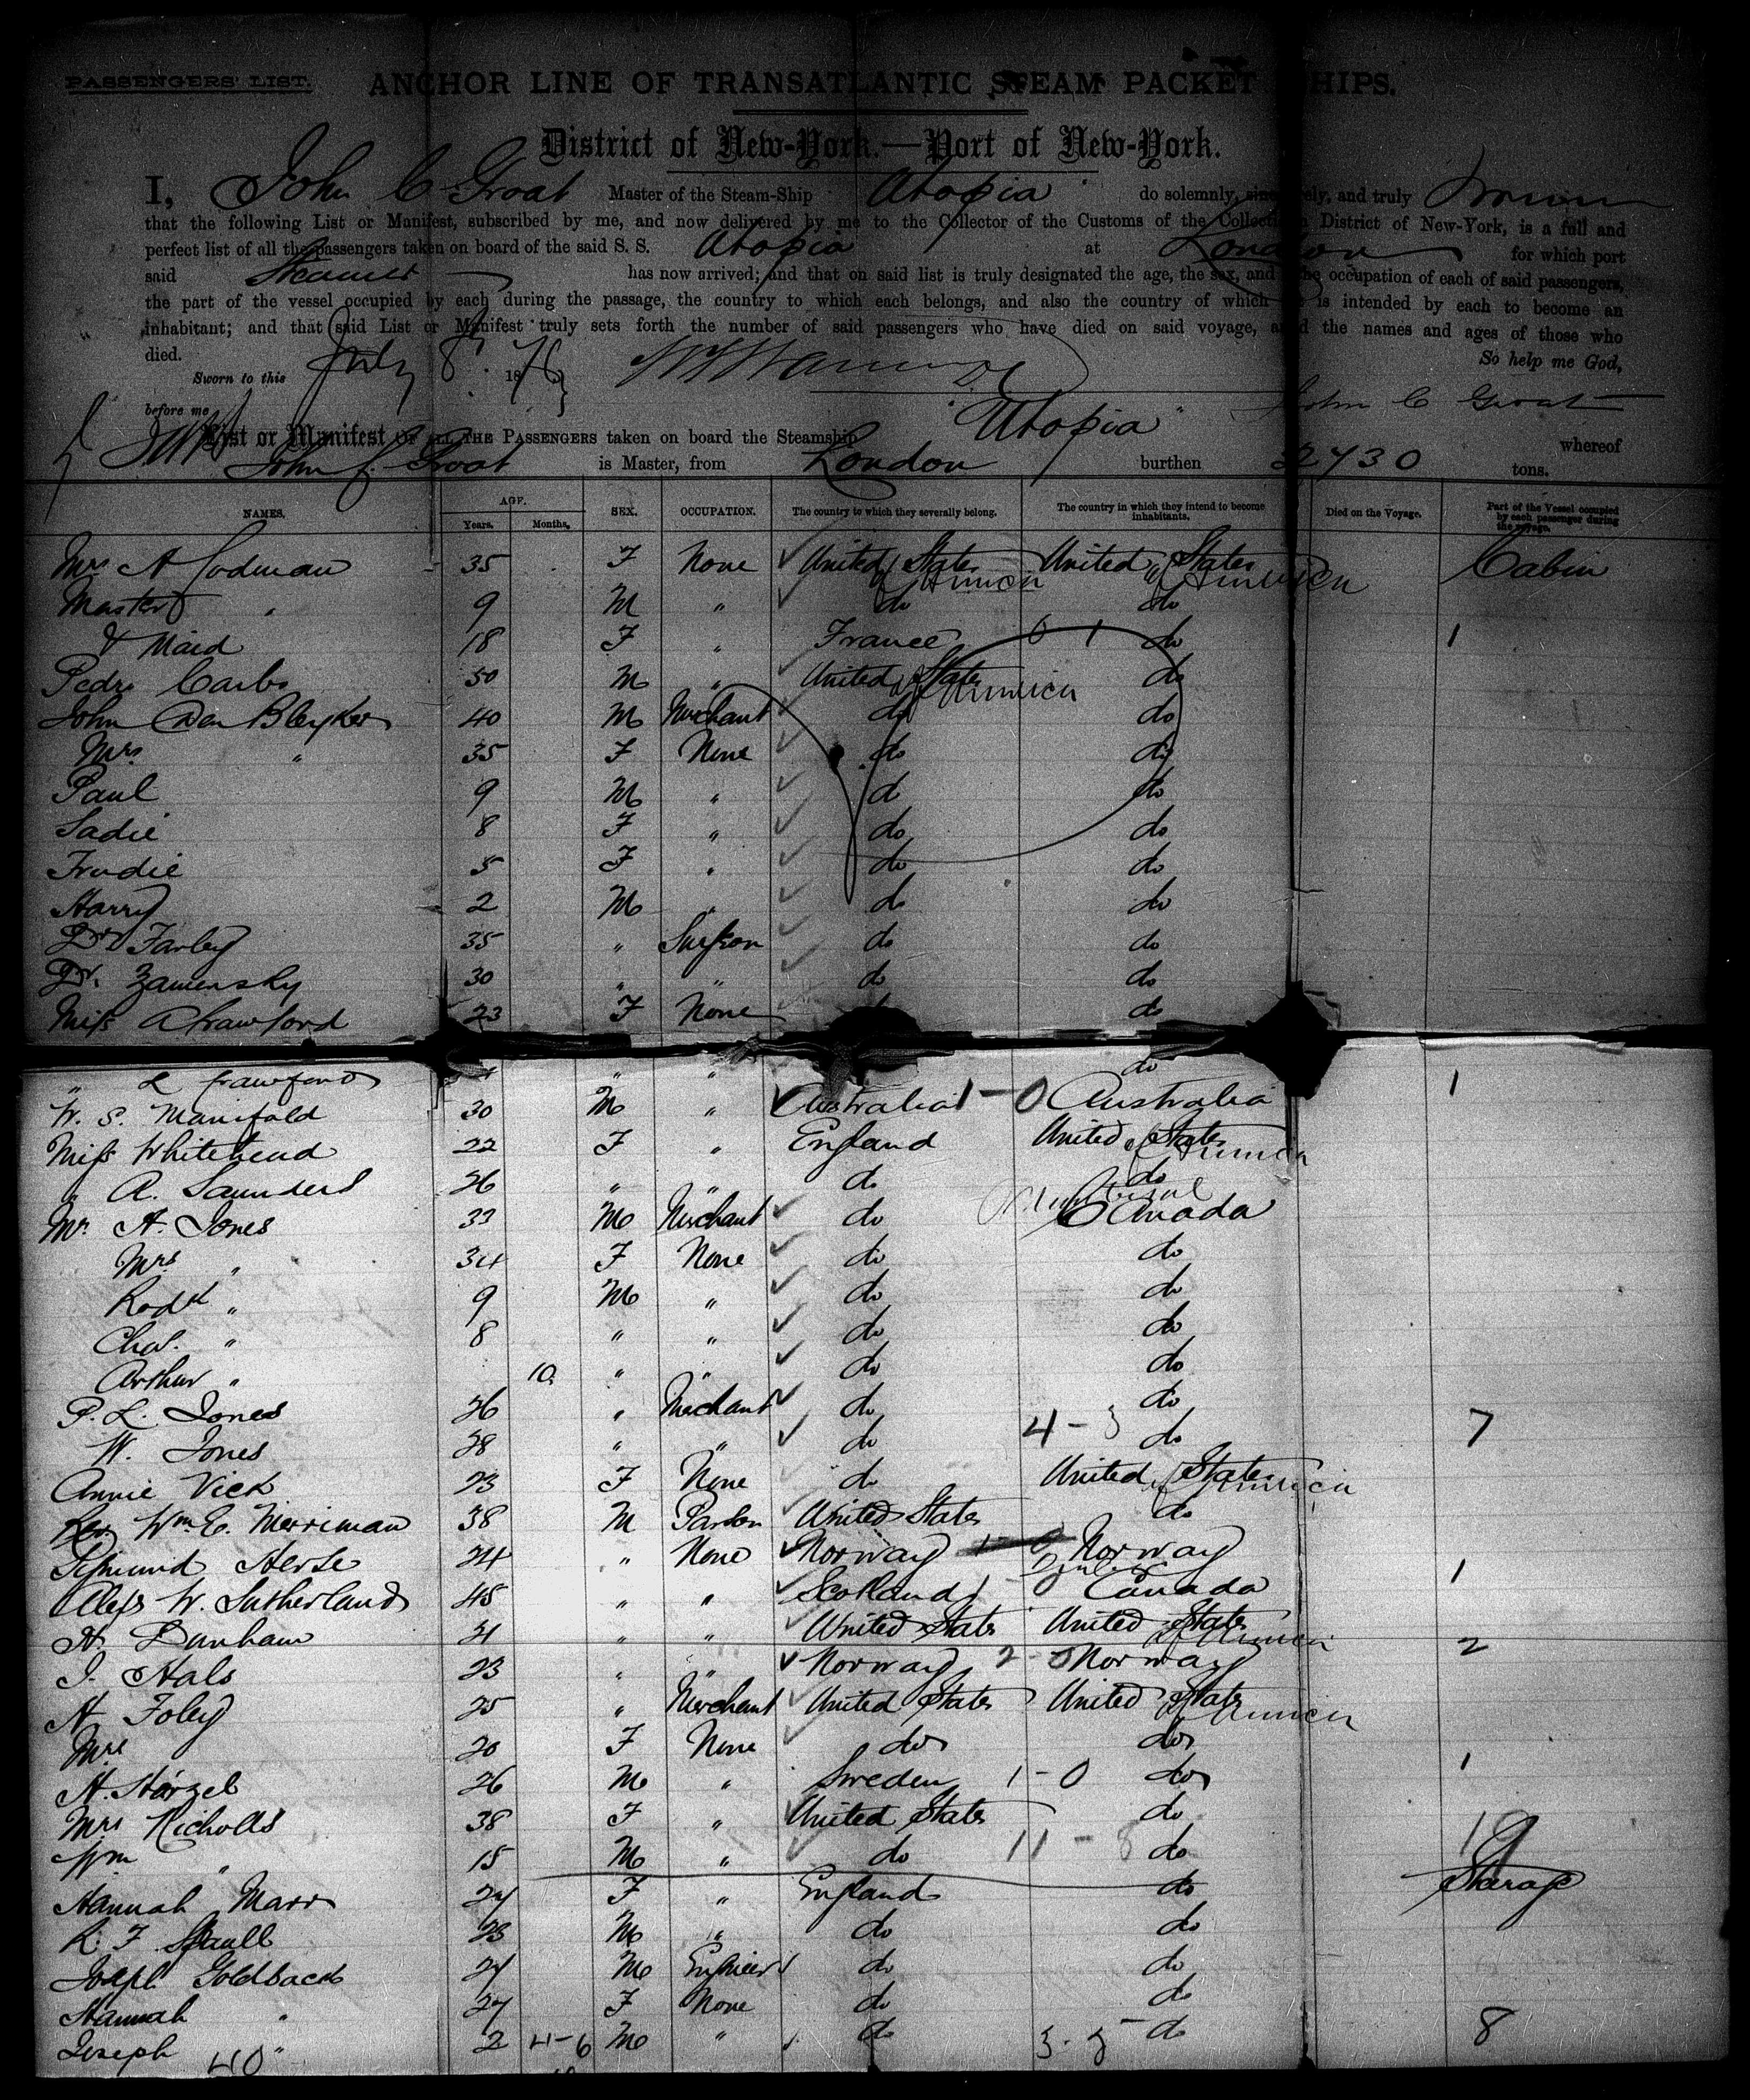 PASSENGERS' LIST. ANCHOR LINE OF TRANSATLANTIC STEAM PACKET SHIPS.
District of New-York.—Port of New-York.
I, John C Groat Master of the Steam-Ship Utopia do solemnly, sincerely, and truly
that the following List or Manifest, subscribed by me, and now delivered by me to the Collector of the Customs of the Collection District of New-York, is a full and
perfect list of all the passengers taken on board of the said S. S. Utopia at London for which port
said Steamer has now arrived; and that on said list is truly designated the age, the sex, and the occupation of each of said passengers,
the part of the vessel occupied by each during the passage, the country to which each belongs, and also the country of which it is intended by each to become an
inhabitant; and that said List or Manifest truly sets forth the number of said passengers who have died on said voyage, and the names and ages of those who
died. So help me God,
Sworn to this July 8. 1876
before me John C Groat
List or Manifest OF ALL THE PASSENGERS taken on board the Steamship "Utopia" whereof
John C. Groat is Master, from London burthen 2730 tons.
NAMES. AGE. Years. Months. SEX. OCCUPATION. The country to which they severally belong. The country in which they intend to become inhabitants. Died on the Voyage. Part of the Vessel occupied by each passenger during the voyage.
Mrs A Codman 35 F None United States of America United States of America Cabin
Master " 9 M " do do
& Maid 18 F " France 0 1 do 1
Pedro Carbo 50 M " United States of America do
John Den Bleyker 40 M Merchant do do
Mrs " 35 F None do do
Paul 9 M " do do
Sadie 8 F " do do
Trudie 5 F " do do
Harry 2 M " do do
Dr Farley 35 " Surgeon do do
Dr. Zamensky 30 " " do do
Miss A Crawford 23 F None do
" L Crawford " " do 1
W. S. Manifold 30 M " Australia 1-0 Australia
Miss Whitehead 22 F " England United States of America
" A. Saunders 26 " " do do
Mr. A. Jones 33 M Merchant do Canada
Mrs " 34 F None do do
Rodk " 9 M " do do
Chas. " 8 " " do do
Arthur " 10 " " do do
P. L. Jones 26 " Merchant do do
W. Jones 28 " " do 4-3 do 7
Annie Vick 23 F None do United States of America
Rev Wm E. Merriman 38 M Parson United States do
Sigmund Herse 24 " None Norway 1 0 Norway
Alexr W. Sutherland 45 " " Scotland 1 0 Canada 1
H. Dunham 31 " " United States United States of America
I. Hals 23 " " Norway 2-0 Norway 2
H Foley 25 " Merchant United States United States of America
Mrs 20 F None do do
H. Horzel 26 M " Sweden 1-0 do 1
Mrs Nicholls 38 F " United States do
Wm " 15 M " do 11-8 do 19
Hannah Marr 27 F " England do Steerage
R. F. Spaull 23 M " do do
Joseph Goldback 27 M Engineer do do
Hannah " 27 F None do do
Joseph " 2 4-6 M " do 3-5 do 8
40